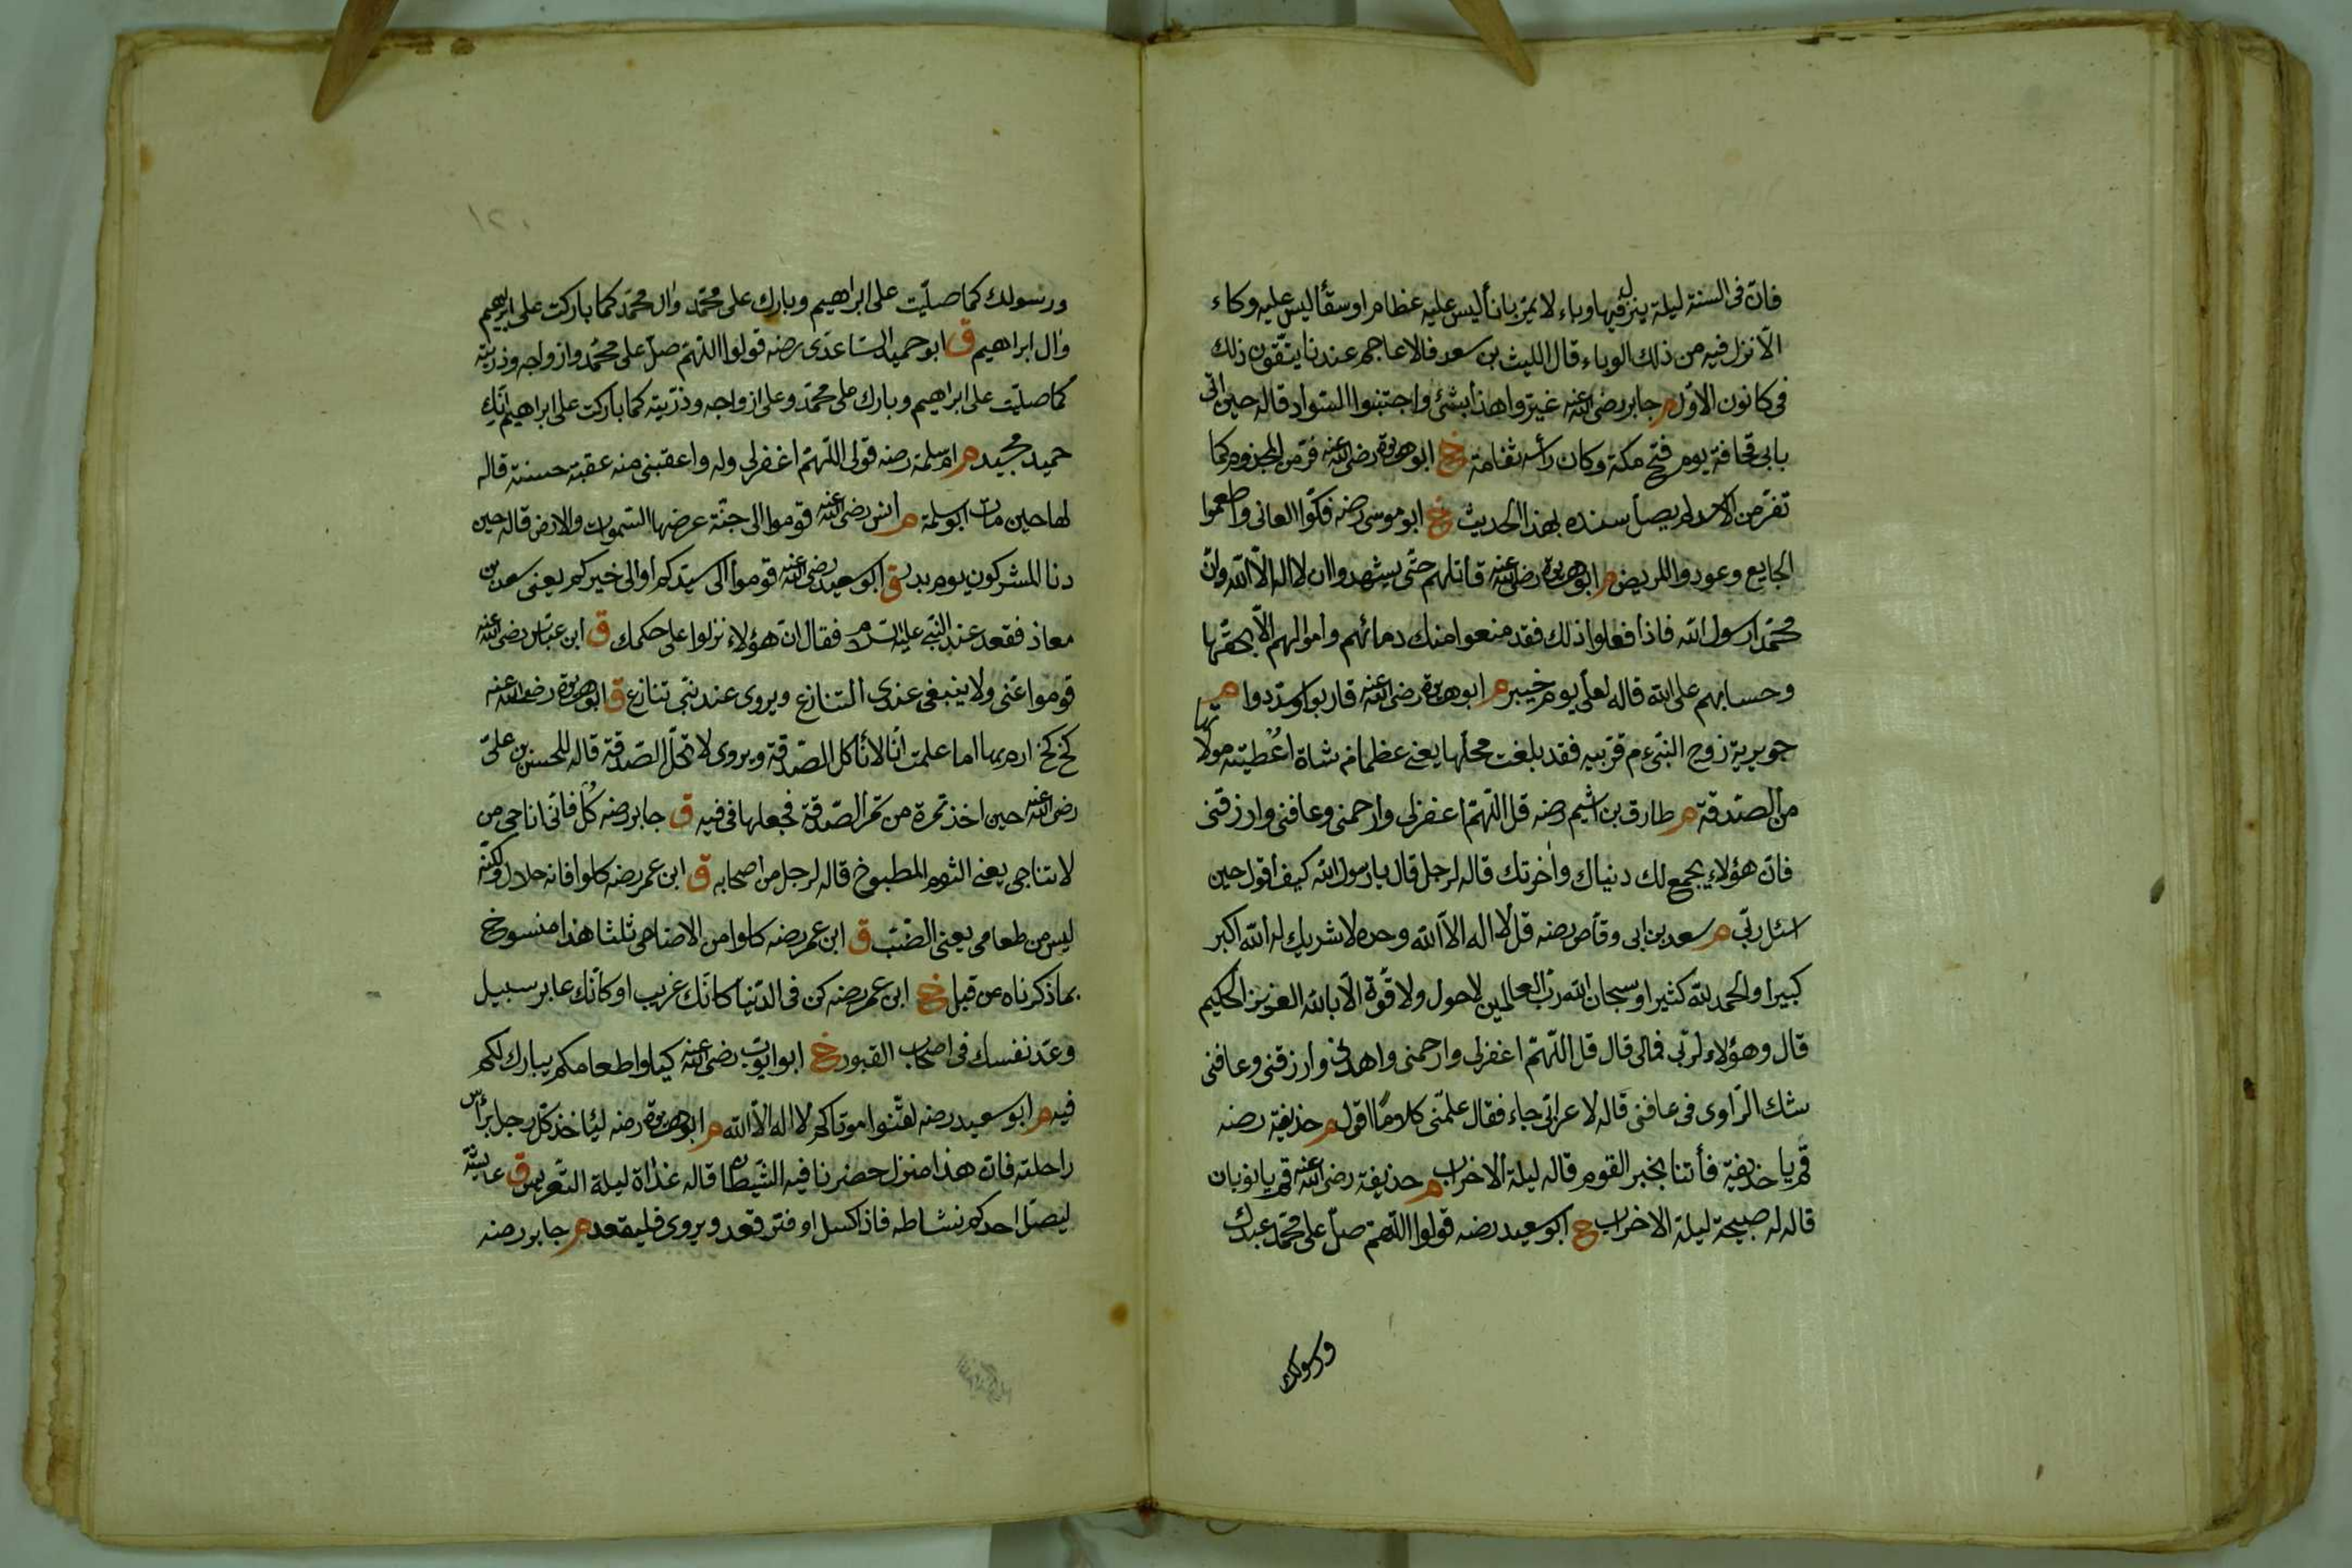 فانّ فى السنة ليلة ينزل فيها وباء لا يمرّ باناء ليس عليه غطاء او سقاء ليس عليه وكاء
الّا نزل فيه من ذلك الوباء قال الليث بن سعد فالاعاجم عندنا يتّقون ذلك
فى كانون الاوّل م جابر رضى الله عنه غيّروا هذا بشئ واجتنبوا السّواد قاله حين اتى
بابى قحافة يوم فتح مكة وكان رأسه ثغامة خ ابو هريرة رضى الله عنه فرّ من المجذوم كما
تفرّ من الاسد لم يصل سنده بهذا الحديث خ ابو موسى رضه فكّوا العانى واطعموا
الجايع وعودوا المريض م ابو هريرة رضى الله عنه قاتلهم حتّى يشهدوا ان لا اله الّا الله وانّ
محمّدا رسول الله فاذا فعلوا ذلك فقد منعوا منك دمائهم واموالهم الّا بحقّها
وحسابهم على الله قاله لعلىّ يوم خيبر م ابو هريرة رضى الله عنه قاربوا وسدّدوا م
جويرية زوج النبىّ عم قرّبيه فقد بلغت محلّها يعنى عظما من شاة اُعْطيته مولاتها
من الصّدقة م طارق بن اشيم رضه قل اللّهمّ اغفرلى وارحمنى وعافنى وارزقنى
فانّ هؤلاء يجمع لك دنياك واٰخرتك قاله لرجل قال يا رسول الله كيف اقول حين
اسئل ربّى م سعد بن ابى وقاص رضه قل لا اله الّا الله وحده لا شريك له الله اكبر
كبيرا والحمد لله كثيرا وسبحان الله ربّ العالمين لا حول ولا قوّة الّا بالله العزيز الحكيم
قال وهؤلاء لربّى فمالى قال قل اللّهمّ اغفرلى وارحمنى واهدنى وارزقنى وعافنى
شك الرّاوى فى عافنى قاله لاعرابىّ جاء فقال علّمنى كلاما اقوله م حذيفة رضه
قم يا حذيفة فأتنا بخبر القوم قاله ليلة الاحزاب م حذيفة رضى الله عنه قم يا نومان
قاله له صبيحة ليلة الاحزاب خ ابو سعيد رضه قولوا اللّهمّ صلّ على محمّد عبدك
ورسولك
ورسولك كما صلّيت على ابراهيم وبارك على محمّد واٰل محمّد كما باركت على ابراهيم
واٰل ابراهيم ق ابو حميد السّاعدى رضه قولوا اللّهمّ صلّ على محمّد وازواجه وذرّيته
كما صلّيت على ابراهيم وبارك على محمّد وعلى ازواجه وذرّيته كما باركت على ابراهيم انّك
حميد مجيد م امّ سلمة رضه قولى اللّهمّ اغفرلى وله واعقبنى منه عقبة حسنة قاله
لها حين مات ابو سلمة م انس رضى الله عنه قوموا الى جنّة عرضها السّموات والارض قاله حين
دنا المشركون يوم بدر ق ابو سعيد رضى الله عنه قوموا الى سيّدكم او الى خيركم يعنى سعد بن
معاذ فقعد عند النبى عليه السّلام فقال انّ هؤلاء نزلوا على حكمك ق ابن عبّاس رضى الله عنه
قوموا عنّى ولا ينبغى عندى التنازع ويروى عند نبىّ تنازع ق ابو هريرة رضى الله عنه
كخ كخ ارم بها اما علمت انّا لا نأكل الصّدقة ويروى لا تحلّ الصّدقة قاله للحسن بن علىّ
رضى الله عنه حين اخذ تمرة من تمر الصّدقة فجعلها فى فيه ق جابر رضه كُل فانّى اناجى من
لا تناجى يعنى الثوم المطبوخ قاله لرجل من اصحابه ق ابن عمر رضه كلوا فانه حلال ولكنّه
ليس من طعامى يعنى الضّبّ ق ابن عمر رضه كلوا من الاضاحى ثلثا هذا منسوخ
بما ذكرناه من قبل خ ابن عمر رضه كن فى الدّنيا كانّك غريب او كانّك عابر سبيل
وعدّ نفسك فى اصحاب القبور خ ابو ايّوب رضى الله عنه كيلوا طعامكم يبارك لكم
فيه م ابو سعيد رضه لقّنوا موتاكم لا اله الّا الله م ابو هريرة رضه ليأخذ كلّ رجل برأس
راحلته فانّ هذا منزل حضرنا فيه الشّيطان قاله غداة ليلة التّعريس ق عايشة
ليصلّ احدكم نشاطه فاذا كسل او فتر قعد ويروى فليقعد م جابر رضه